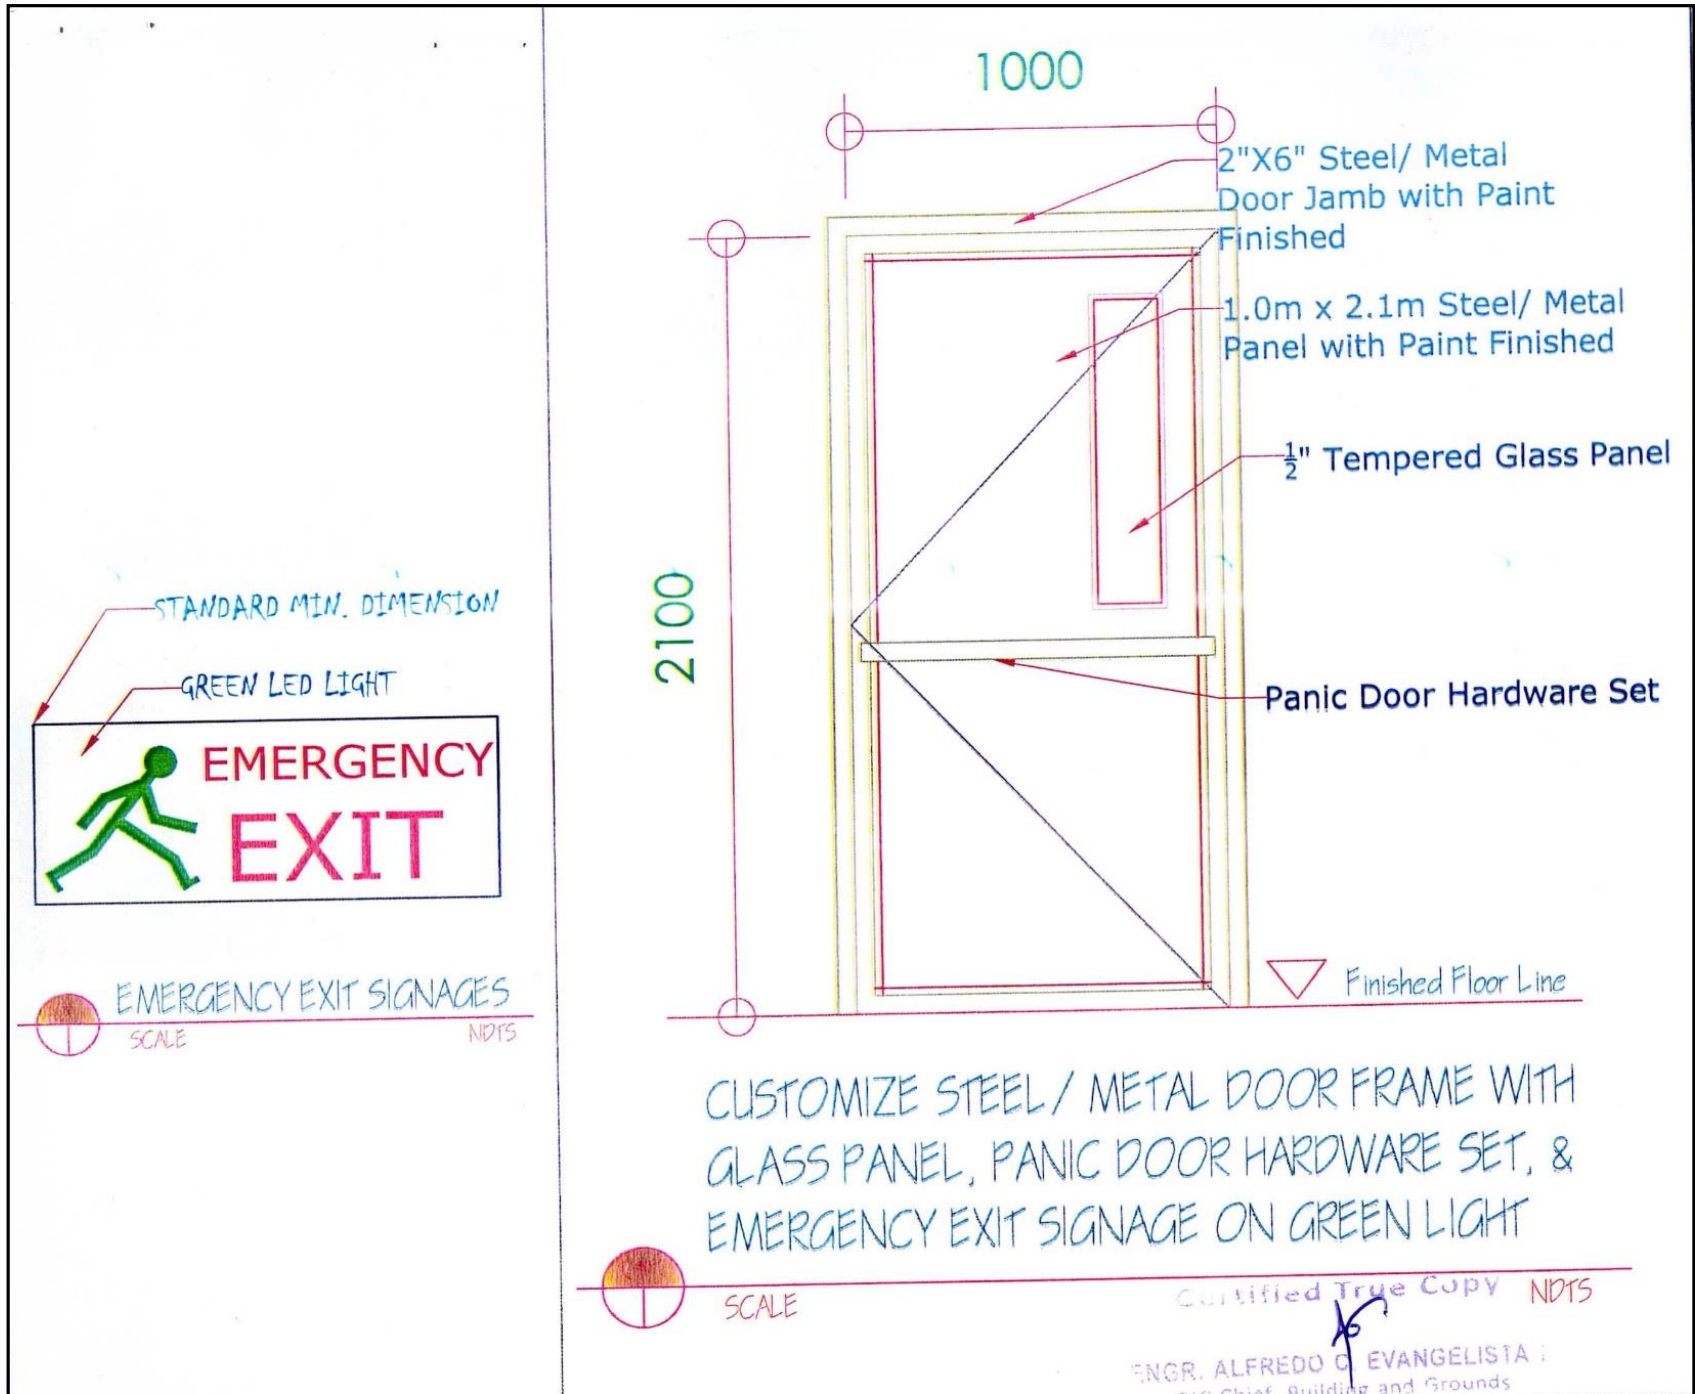 STANDARD MIN. DIMENSION
GREEN LED LIGHT
EMERGENCY
EXIT
EMERGENCY EXIT SIGNAGES
SCALE
NDTS
1000
2"X6" Steel/ Metal
Door Jamb with Paint
Finished
1.0m x 2.1m Steel/ Metal
Panel with Paint Finished
½" Tempered Glass Panel
2100
Panic Door Hardware Set
Finished Floor Line
CUSTOMIZE STEEL / METAL DOOR FRAME WITH
GLASS PANEL, PANIC DOOR HARDWARE SET, &
EMERGENCY EXIT SIGNAGE ON GREEN LIGHT
SCALE
NDTS
Certified True Copy
ENGR. ALFREDO C. EVANGELISTA
Chief, Building and Grounds